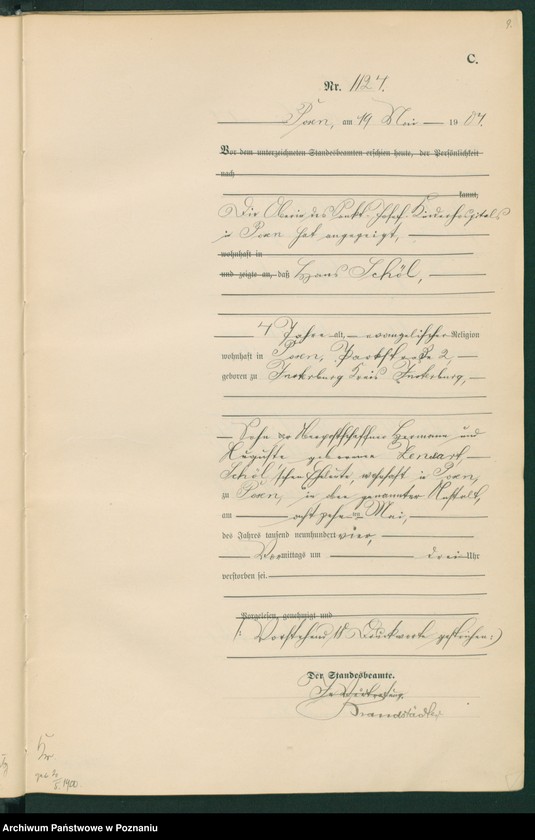 9.
C.
Nr. 1127.
Posen, am 19 Mai 1904.
Vor dem unterzeichneten Standesbeamten erschien heute, der Persönlichkeit
nach
kannt,
Die Oberin des Sankt Josef-Kinderhospitals
in Posen hat angezeigt,
wohnhaft in
und zeigte an, daß Hans Schöl,
4 Jahre alt, evangelischer Religion
wohnhaft in Posen, Parkstraße 2,
geboren zu Insterburg Kreis Insterburg,
Sohn der Hermann und
Auguste geborene Lendart
Schöl'schen Eheleute, wohnhaft in Posen,
zu Posen, in der genannten Anstalt,
am achtzehnten Mai,
des Jahres tausend neunhundert vier,
Vormittags um drei Uhr
verstorben sei.
Vorgelesen, genehmigt und
(Vorstehend 18 Druckworte gestrichen.)
Der Standesbeamte.
In Vertretung.
Brandstädter
1900.
Archiwum Państwowe w Poznaniu